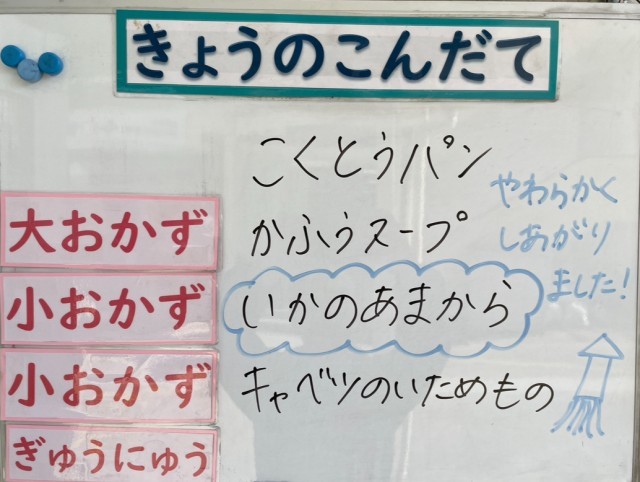 きょうのこんだて
こくとうパン
大おかず かふうスープ
小おかず いかのあまから
小おかず キャベツのいためもの
ぎゅうにゅう
やわらかく
しあがり
ました!